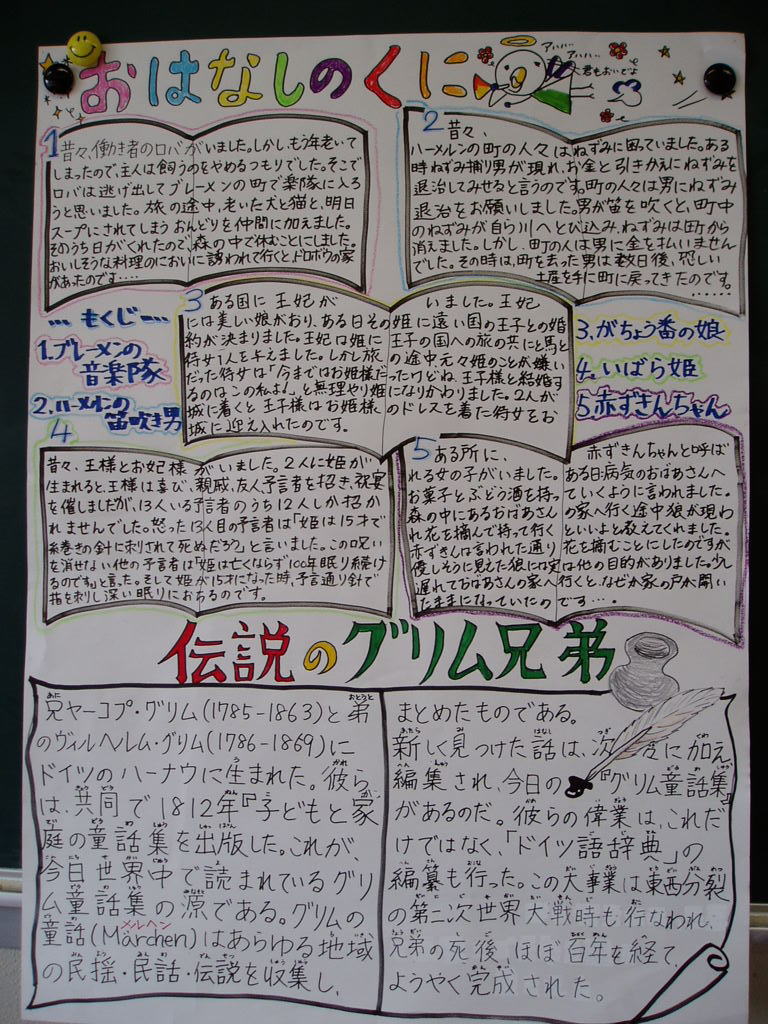 おはなしのくに
アハハ アハハ
君もおいでよ
1
昔々、働き者のロバがいました。しかし、もう年老いて
しまったので、主人は飼うのをやめるつもりでした。そこで
ロバは逃げ出してブレーメンの町で楽隊に入ろ
うと思いました。旅の途中、老いた犬と猫と、明日
スープにされてしまうおんどりを仲間に加えました。
そのうち日がくれたので、森の中で休むことにしました。
おいしそうな料理のにおいに誘われて行くとドロボウの家
があったのです‥‥
2 昔々、
ハーメルンの町の人々はねずみに困っていました。ある
時ねずみ捕り男が現れ、お金と引きかえにねずみを
退治してみせると言うのです。町の人々は男にねずみ
退治をお願いしました。男が笛を吹くと、町中
のねずみが自ら川へとび込み、ねずみは町から
消えました。しかし、町の人は男に金を払いません
でした。その時は、町を去った男は数日後、恐しい
土産を手に町に戻ってきたのです。
‥‥‥
… もくじ …
1.ブレーメンの
音楽隊
2.ハーメルンの
笛吹き男
3.がちょう番の娘
4.いばら姫
5.赤ずきんちゃん
3 ある国に王妃がいました。王妃
には美しい娘がおり、ある日その姫に遠い国の王子との婚
約が決まりました。王妃は姫に王子の国への旅の共にと馬と
侍女1人を与えました。しかし旅の途中元々姫のことが嫌い
だった侍女は「今まではお姫様だったけどね、王子様と結婚す
るのはこの私よ。」と無理やり姫になりかわりました。2人が
城に着くと王子様はお姫様のドレスを着た侍女をお
城に迎え入れたのです。
4
昔々、王様とお妃様がいました。2人に姫が
生まれると、王様は喜び、親戚、友人予言者を招き、祝宴
を催しましたが、13人いる予言者のうち12人しか招か
れませんでした。怒った13人目の予言者は「姫は15才で
糸巻きの針に刺されて死ぬだろう」と言いました。この呪い
を消せない他の予言者は「姫は亡くならず100年眠り続け
るのです」と言った。そして姫が15才になった時、予言通り針で
指を刺し深い眠りにおちるのです。
5 ある所に、赤ずきんちゃんと呼ば
れる女の子がいました。ある日病気のおばあさんへ
お菓子とぶどう酒を持っていくように言われました。
森の中にあるおばあさんの家へ行く途中狼が現わ
れ花を摘んで持って行くといいよと教えてくれました。
赤ずきんは言われた通り花を摘むことにしたのですが
優しそうに見えた狼には実は他の目的がありました。少し
遅れておばあさんの家へ行くと、なぜか家の戸が開い
たままになっていたのです‥‥
伝説のグリム兄弟
兄ヤーコプ・グリム(1785-1863)と弟
のヴィルヘルム・グリム(1786-1869)に
ドイツのハーナウに生まれた。彼ら
は、共同で1812年『子どもと家
庭の童話集を出版した。これが、
今日世界中で読まれているグリ
ム童話集の源である。グリムの
童話(Märchen)はあらゆる地域
の民揺・民話・伝説を収集し、
まとめたものである。
新しく見つけた話は、次々に加え
編集され、今日の『グリム童話集』
があるのだ。彼らの偉業は、これだ
けではなく、「ドイツ語辞典」の
編纂も行った。この大事業は東西分裂
の第二次世界大戦時も行なわれ、
兄弟の死後、ほぼ百年を経て、
ようやく完成された。